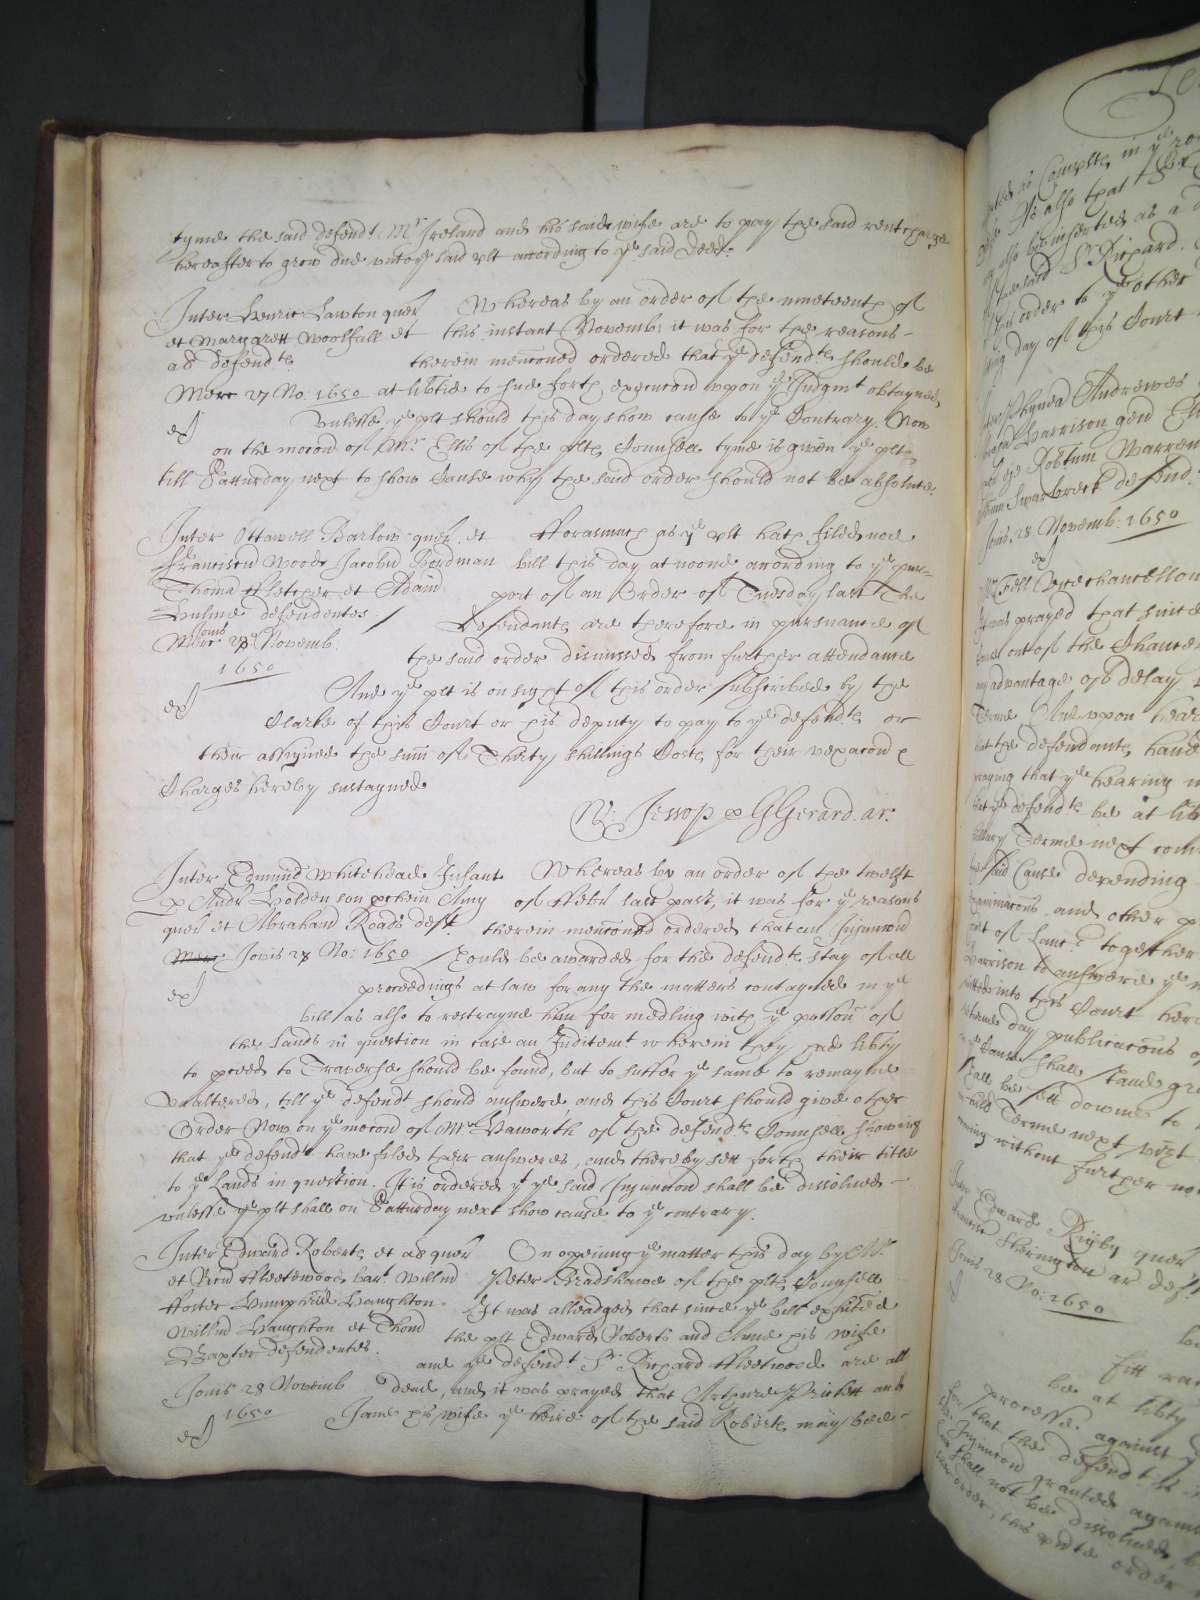 tyme the said defend.t M.r Ireland and his said wife are to pay the said rentcharge
hereafter to grow due unto ye said plt according to ye said Deed.
Inter Henric Lawton quer
et Margarett Woolfall et
als defend.ts
Merc 27 No: 1650
ex
Whereas by an order of the nineteenth of
this instant Novemb: it was for the reasons
therein menconed ordered that ye defend.ts should be
at libtie to sue forth execucon uppon ye Judgmt obtayned
unlesse ye plt should this day show cause to ye Contrary. Now
on the mocon of M.r Ellis of the plts Counsell tyme is given ye plt
till Satturday next to show Cause why the said order should not be absolute.
Inter Ottawell Barlow quer. et
Franciscu Wood Jacobu Boardman
Thoma Fletcher et Adam
Hulme defendentes.
Jovis
Merc 28o Novemb:
1650
ex
Fforasmuch as ye plt hath filed noe
bill this day at noone according to ye pur-
port of an Order of Tuesday last The
Defendants are therefore in pursuance of
the said order dismissed from further attendance
And ye plt is on sight of this order subscribed by the
Clarke of this Court or his deputy to pay to ye defend.ts or
their assignee the sum of Thirty shillings Costs for their vexacon &
Charges hereby sustayned
W: Jessop p G Gerard. ar.
Inter Edmund Whitehead Infant
p Andr Holden son prchein Amy
quer et Abraham Roads deft
Merc Jovis 28 No: 1650
ex
Whereas by an order of the twelft
of ffebr last past, it was for ye reasons
therein menconed ordered that an Injuncon
should be awarded for the defend.ts stay of all
proceedings at law for any the matters contayned in ye
bill as also to restrayne him for medling with ye possion of
the Lands in question in case an Inditemt wherein they had libty
to proceed to Traverse should be found, but to suffer ye same to remayne
unaltered, till ye defendt should answere, and this Court should give other
Order Now on ye mocon of M.r Haworth of the defend.ts Counsell showing
that ye defend.ts have filed their answeres, and thereby sett forth their title
to ye Lands in question. It is ordered yt ye said Injuncon shall be dissolved
unlesse ye plt shall on Satturday next show cause to ye contrary.
Inter Edward Roberts et als quer
et Ricu Ffleetwood bart. Willm
Ffoster Humphrid Haughton
Willm Haughton et Thom
Baxter defendentes.
Jovis 28 Novemb
1650
ex
On opening ye matter this day by M.r
Peter Bradshawe of the plts Counsell
It was alleadged that since ye bill exhited
the plt Edward Roberts and Anne his wife
and ye defend.t S.r Richard Ffleetwood are all
dead, and it was prayed that Arthure Prickett and
Jane his wife ye heire of the said Roberts may bee
in ye
Also that
also be inserted as a
the said S.r Richard.
this order to ye other
day of this Court
Andrewes
Harrison gen
Robtum Warren
Swarbreck defend.
Jovis. 28. Novemb: 1650
ex
Mr Fell Vicechancellour
It was prayed that since
come out of the Chancery
advantage of delay
Terme And uppon hear
the defendants have
praying that ye hearing
ye defend.ts be at lib
Hillary Terme next
said Cause depending
and other
of Lanc together
Harrison to answere ye
into this Court here
day publicacons
Cause shall stand
shall be sett downe to
Terme next vizt
without further no
Inter Edward Rigby quer
Sherington ar def.
Jovis 28 No: 1650
ex
be at libty
processe against
for that the defend.t
Injuncon granted against
shall not be dissolved
order, this
order